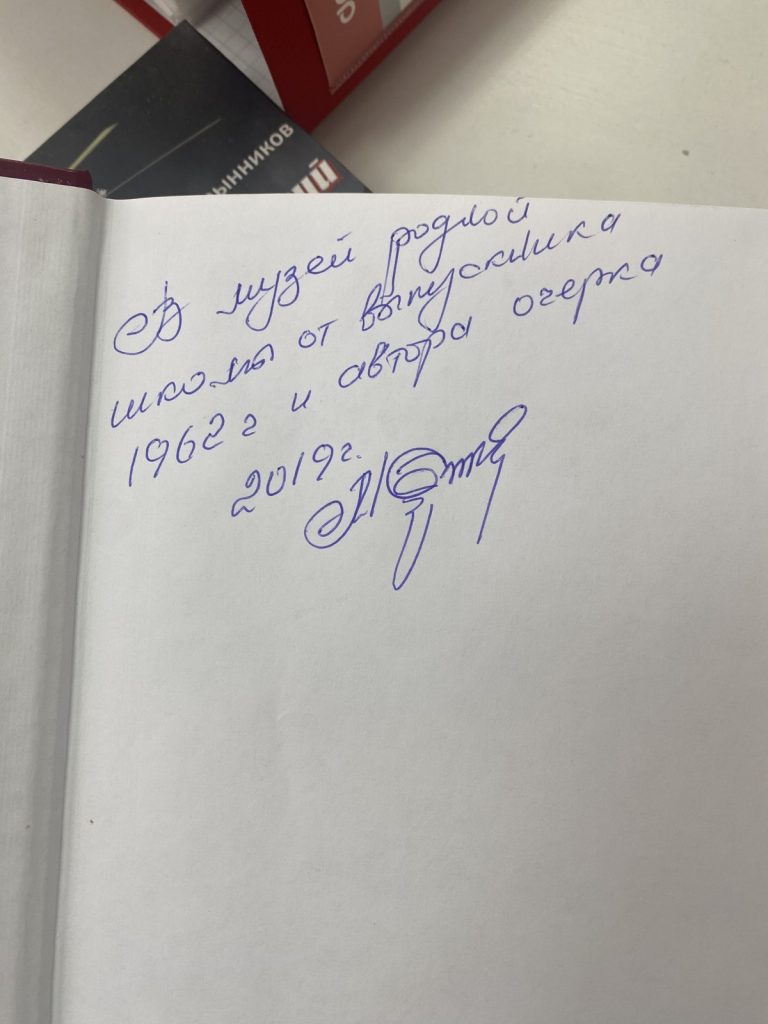 ЫННИКОВ
ИЙ
В музей родной
школы от выпускника
1962 г и автора очерка
2019г.